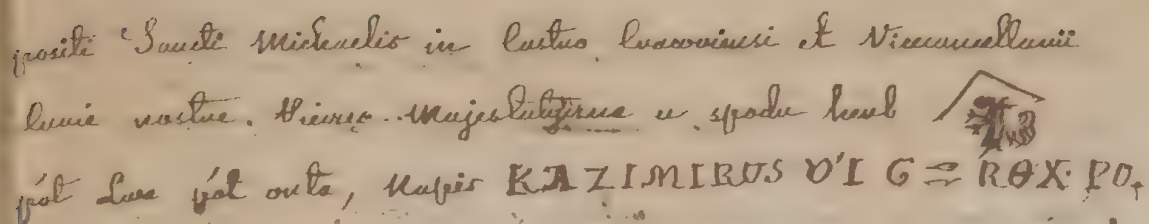 positi Sancti Michaelis in Castro Cracoviensi et Vicecancellarii
Curie nostre. Pieczęć Majestatyczna u spodu herb
pół Lwa pół orła, napis KAZIMIRUS D'I G = REX. PO,